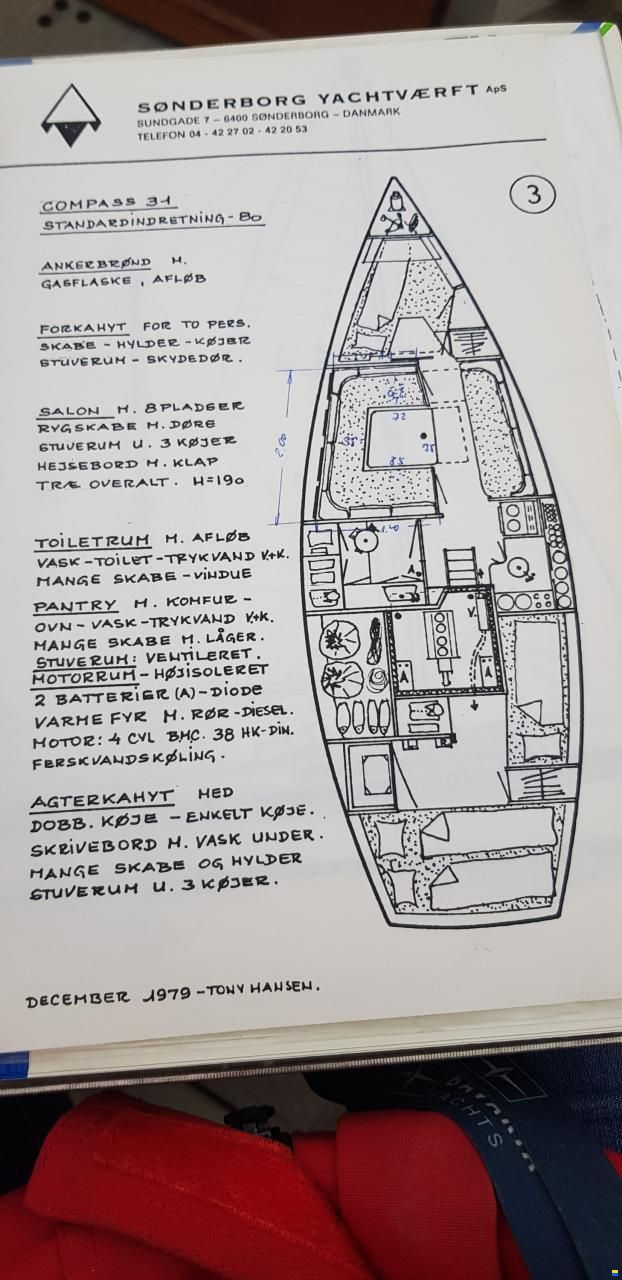 SØNDERBORG YACHTVÆRFT ApS
SUNDGADE 7 – 6400 SØNDERBORG – DANMARK
TELEFON 04 - 42 27 02 - 42 20 53
3
COMPASS 31
STANDARDINDRETNING - 80
ANKERBRØND M.
GASFLASKE, AFLØB
FORKAHYT FOR TO PERS.
SKABE - HYLDER - KØJER
STUVERUM - SKYDEDØR.
SALON M. 8 PLADSER
RYGSKABE M. DØRE
STUVERUM U. 3 KØJER
HEJSEBORD M. KLAP
TRÆ OVERALT. H=190
TOILETRUM M. AFLØB
VASK-TOILET-TRYKVAND V.+K.
MANGE SKABE-VINDUE
PANTRY M. KOMFUR -
OVN - VASK-TRYKVAND V+K.
MANGE SKABE M. LÅGER.
STUVERUM: VENTILERET.
MOTORRUM - HØJISOLERET
2 BATTERIER (A) - DIODE
VARME FYR M. RØR-DIESEL.
MOTOR: 4 CYL BMC. 38 HK-DIN.
FERSKVANDSKØLING.
AGTERKAHYT MED
DOBB. KØJE - ENKELT KØJE.
SKRIVEBORD M. VASK UNDER.
MANGE SKABE OG HYLDER
STUVERUM U. 3 KØJER.
DECEMBER 1979 - TONY HANSEN.
72
75
85
35
2.00
1.40
V.
A
A
YACHTS